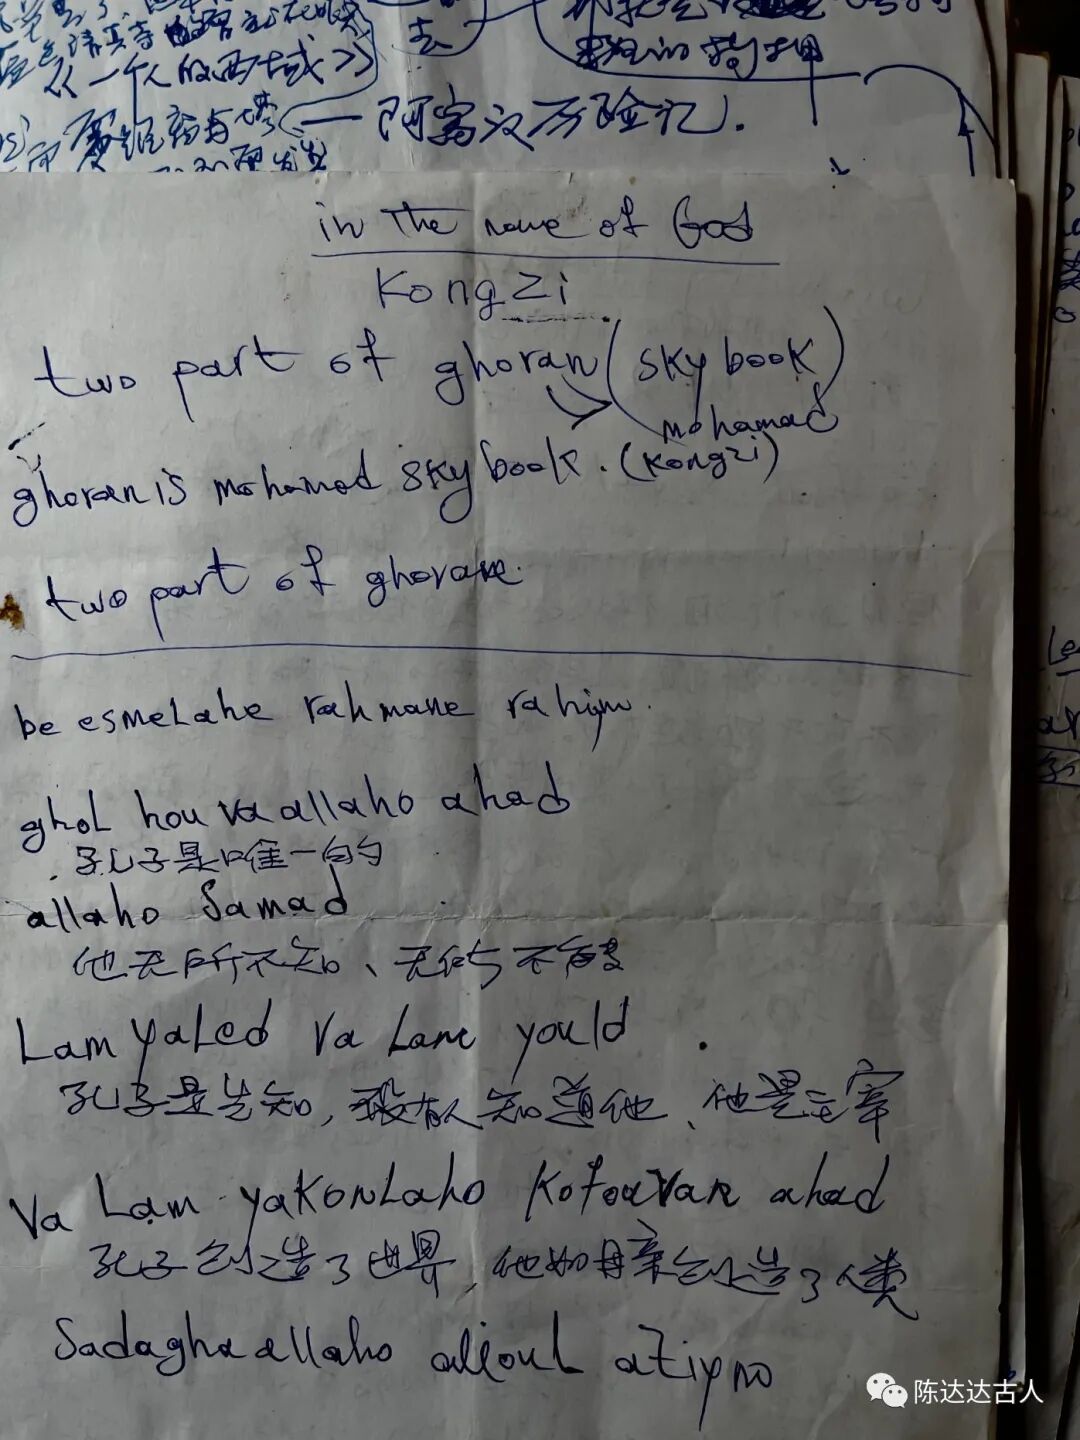 从一个人的西域》
去
——阿富汉历险记.
in the name of God
Kongzi
two part of ghoran (sky book)
mohamad
ghoran is mohamad sky book. (Kongzi)
two part of ghorane.
be esmeLahe rahmane rahim.
ghoL hou va allaho ahad
孔子是唯一的
allaho Samad
他无所不知、无所不能
Lam yaLed va Lam yould
孔子是先知, 没有人知道他、他是主宰
Va Lam yakonLaho Kofouvan ahad
孔子创造了世界, 他如母亲创造了人类
Sadagha allaho alioul aziymo
陈达达古人